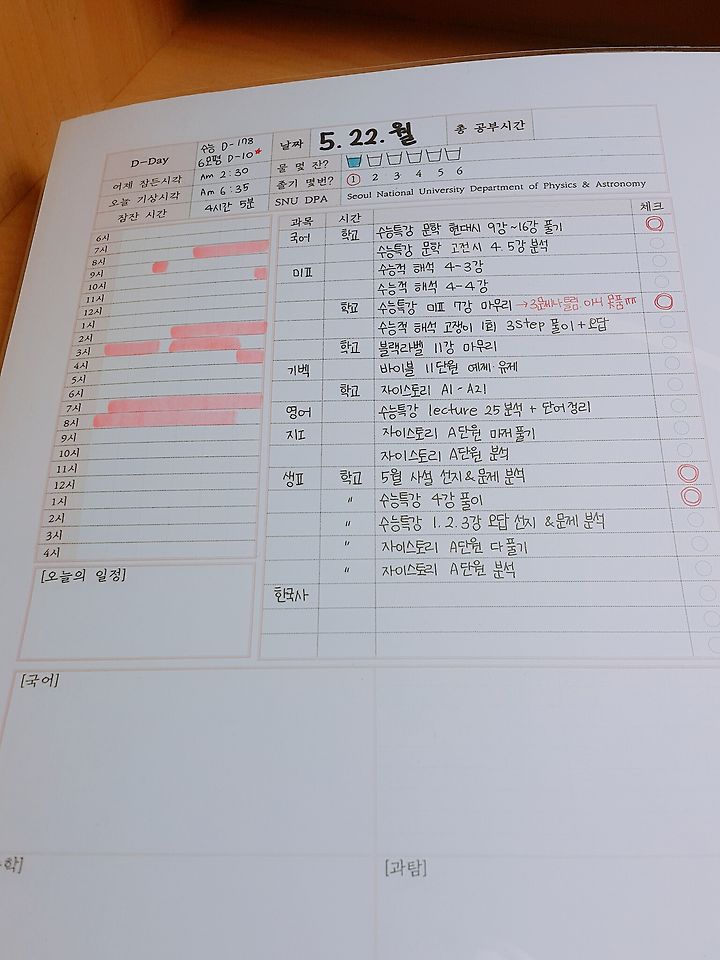 D-Day 수능 D-178 날짜 5. 22. 월 총 공부시간
6모평 D-10★
어제 잠든시각 Am 2:30 물 몇 잔?
오늘 기상시각 Am 6:35 졸기 몇번? 1 2 3 4 5 6
잠잔 시간 4시간 5분 SNU DPA Seoul National University Department of Physics & Astronomy
6시
7시
8시
9시
10시
11시
12시
1시
2시
3시
4시
5시
6시
7시
8시
9시
10시
11시
12시
1시
2시
3시
4시
[오늘의 일정]
과목 시간 체크
국어 학교 수능특강 문학 현대시 9강~16강 풀기
수능특강 문학 고전시 4. 5강 분석
미II 수능적 해석 4-3강
수능적 해석 4-4강
학교 수능특강 미II 7강 마무리 → 3문제나 틀림 아니 못품ㅠㅠ
수능적 해석 고쟁이 1회 3step 풀이+오답
학교 블랙라벨 11강 마무리
기벡 바이블 11단원 예제·유제
학교 자이스토리 A1-A21
영어 수능특강 lecture 25 분석 + 단어정리
지I 자이스토리 A단원 마저 풀기
자이스토리 A단원 분석
생II 학교 5월 사설 선지&문제 분석
〃 수능특강 4강 풀이
〃 수능특강 1. 2. 3강 오답 선지 & 문제 분석
〃 자이스토리 A단원 다 풀기
〃 자이스토리 A단원 분석
한국사
[국어]
학]
[과탐]